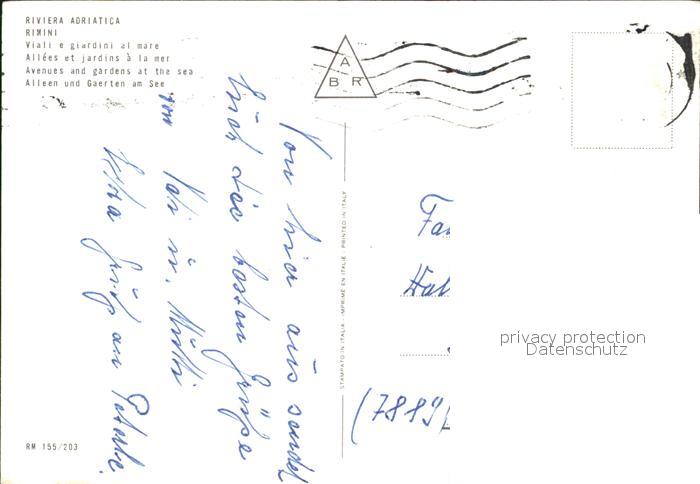 RIVIERA ADRIATICA
RIMINI
Viali e giardini al mare
Allées et jardins à la mer
Avenues and gardens at the sea
Alleen und Gaerten am See
A
B R
Von hier aus sendet
Euch die besten Grüße
von
Vati u. Mutti
Extra Gruß an
STAMPATO IN ITALIA - IMPRIMÉ EN ITALIE - PRINTED IN ITALY
Fa
Hal
(7889)
privacy protection
Datenschutz
RM 155/203